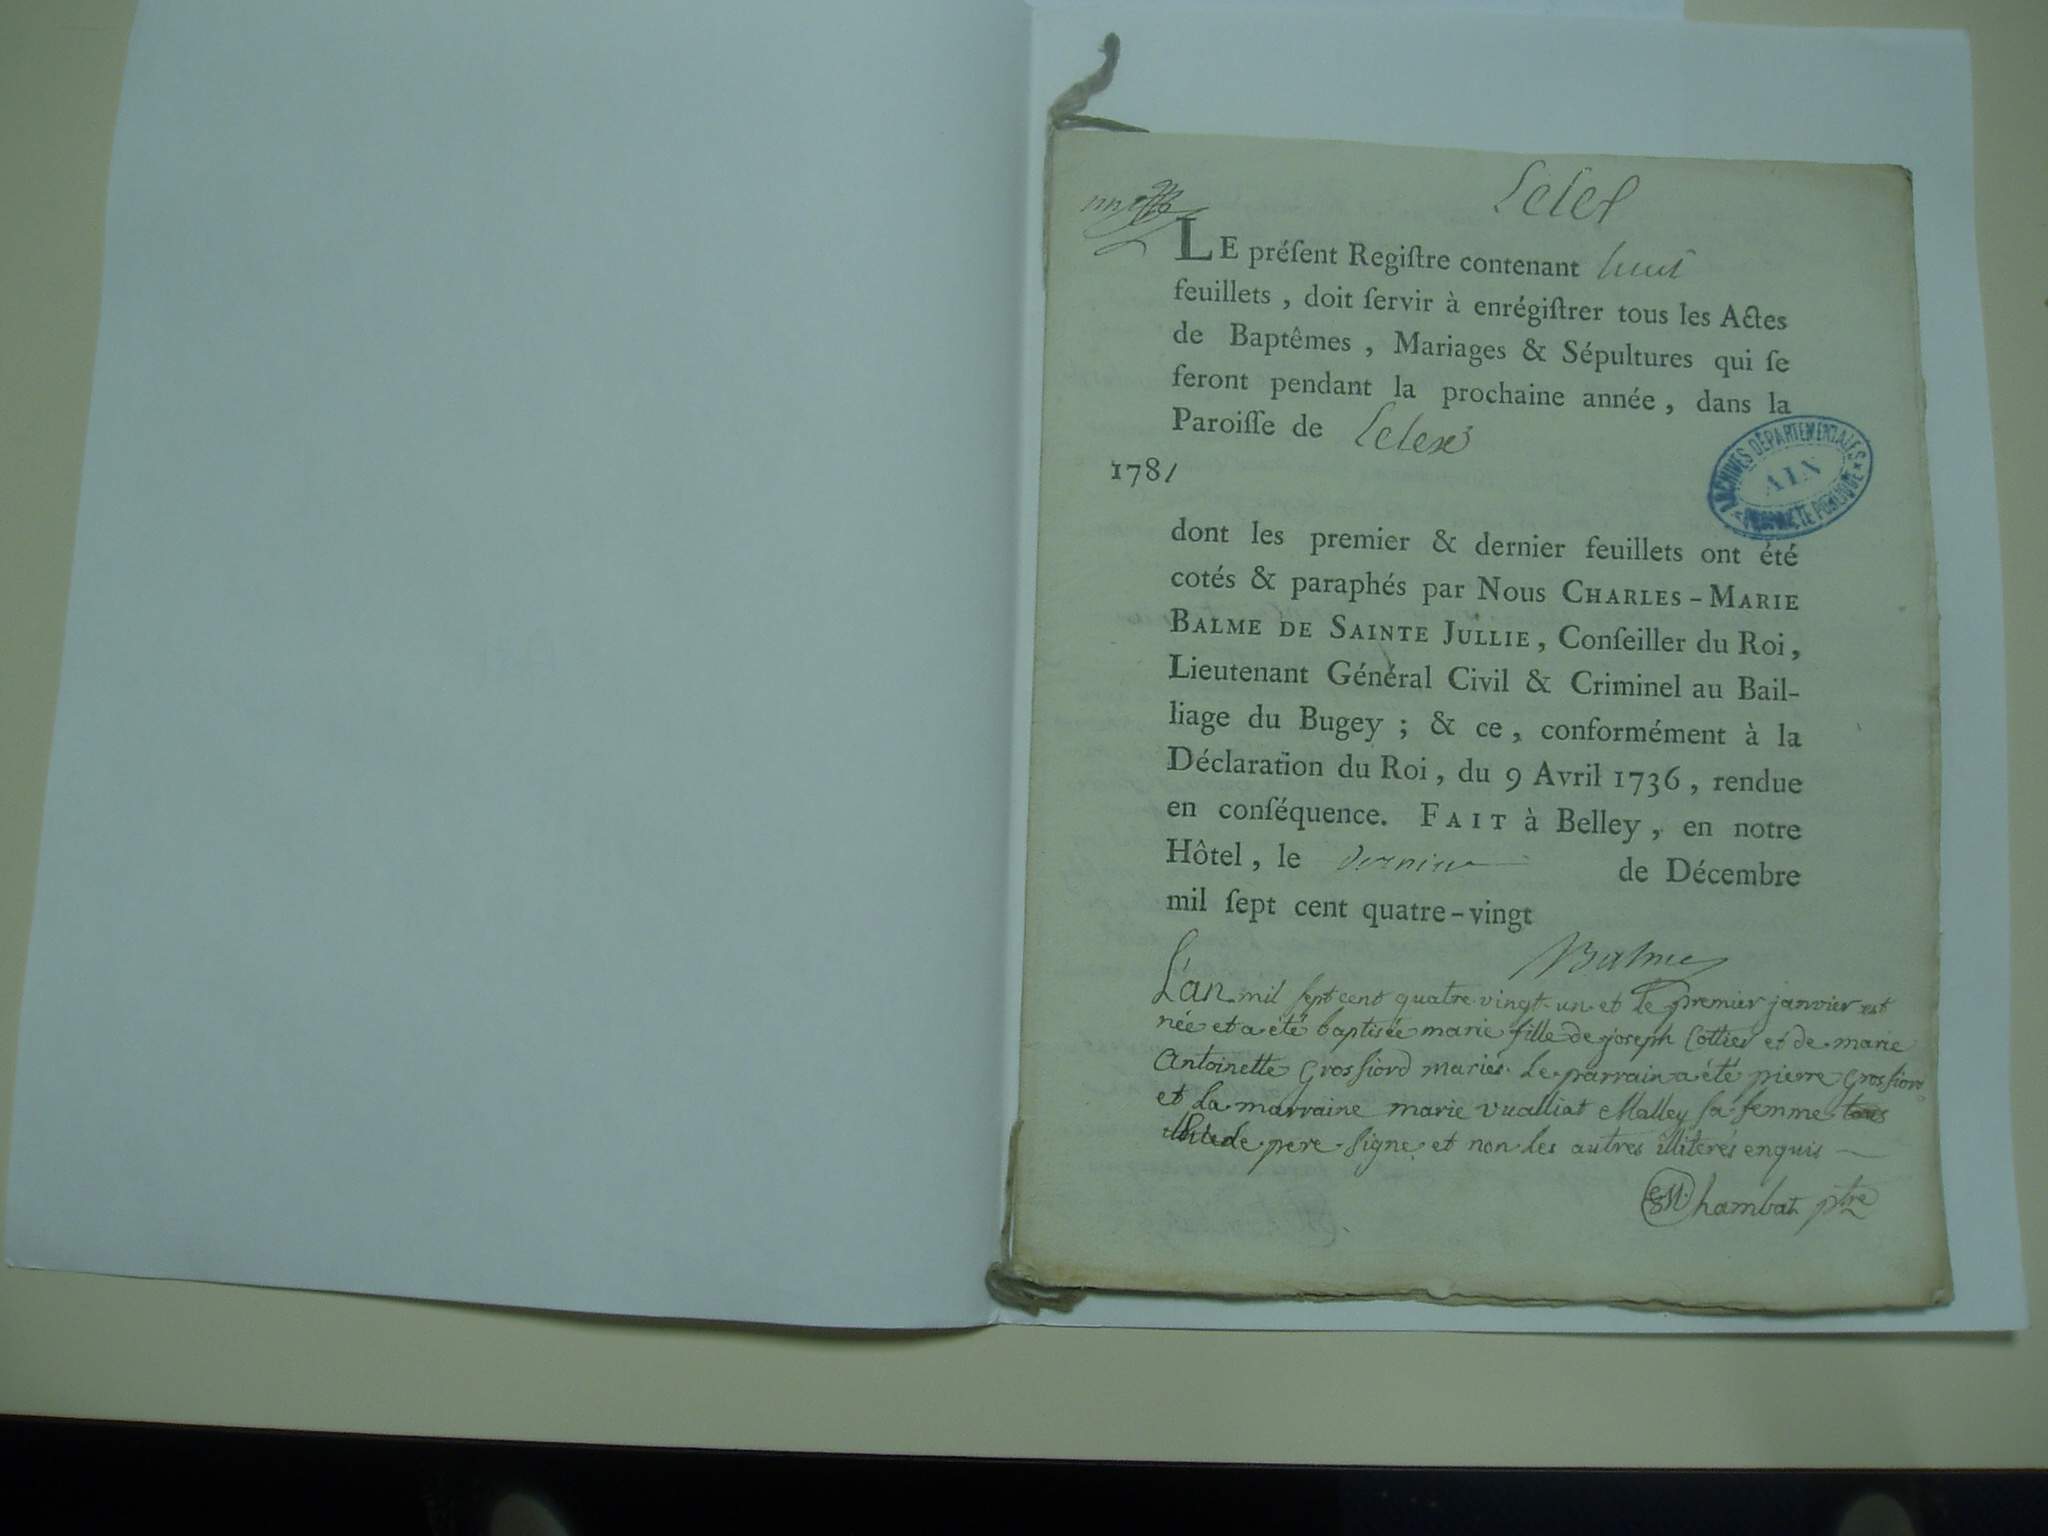 Lelex
LE préſent Regiſtre contenant huit
feuillets, doit ſervir à enrégiſtrer tous les Actes
de Baptêmes, Mariages & Sépultures qui ſe
feront pendant la prochaine année, dans la
Paroiſſe de Lelex
1781
ARCHIVES DÉPARTEMENTALES
AIN
PROPRIÉTÉ PUBLIQUE
dont les premier & dernier feuillets ont été
cotés & paraphés par Nous CHARLES-MARIE
BALME DE SAINTE JULLIE, Conſeiller du Roi,
Lieutenant Général Civil & Criminel au Bail-
liage du Bugey; & ce, conformément à la
Déclaration du Roi, du 9 Avril 1736, rendue
en conſéquence. FAIT à Belley, en notre
Hôtel, le dernier de Décembre
mil ſept cent quatre-vingt
Balme
L'an mil sept cent quatre vingt un et le premier janvier est
née et a été baptisée marie fille de joseph Cottier et de marie
Antoinette Grosfiord mariés. Le parrain a été pierre Grosfiord
et la marraine marie vualliat Malley sa femme
pere signe et non les autres illiterés enquis
Chambat ptre